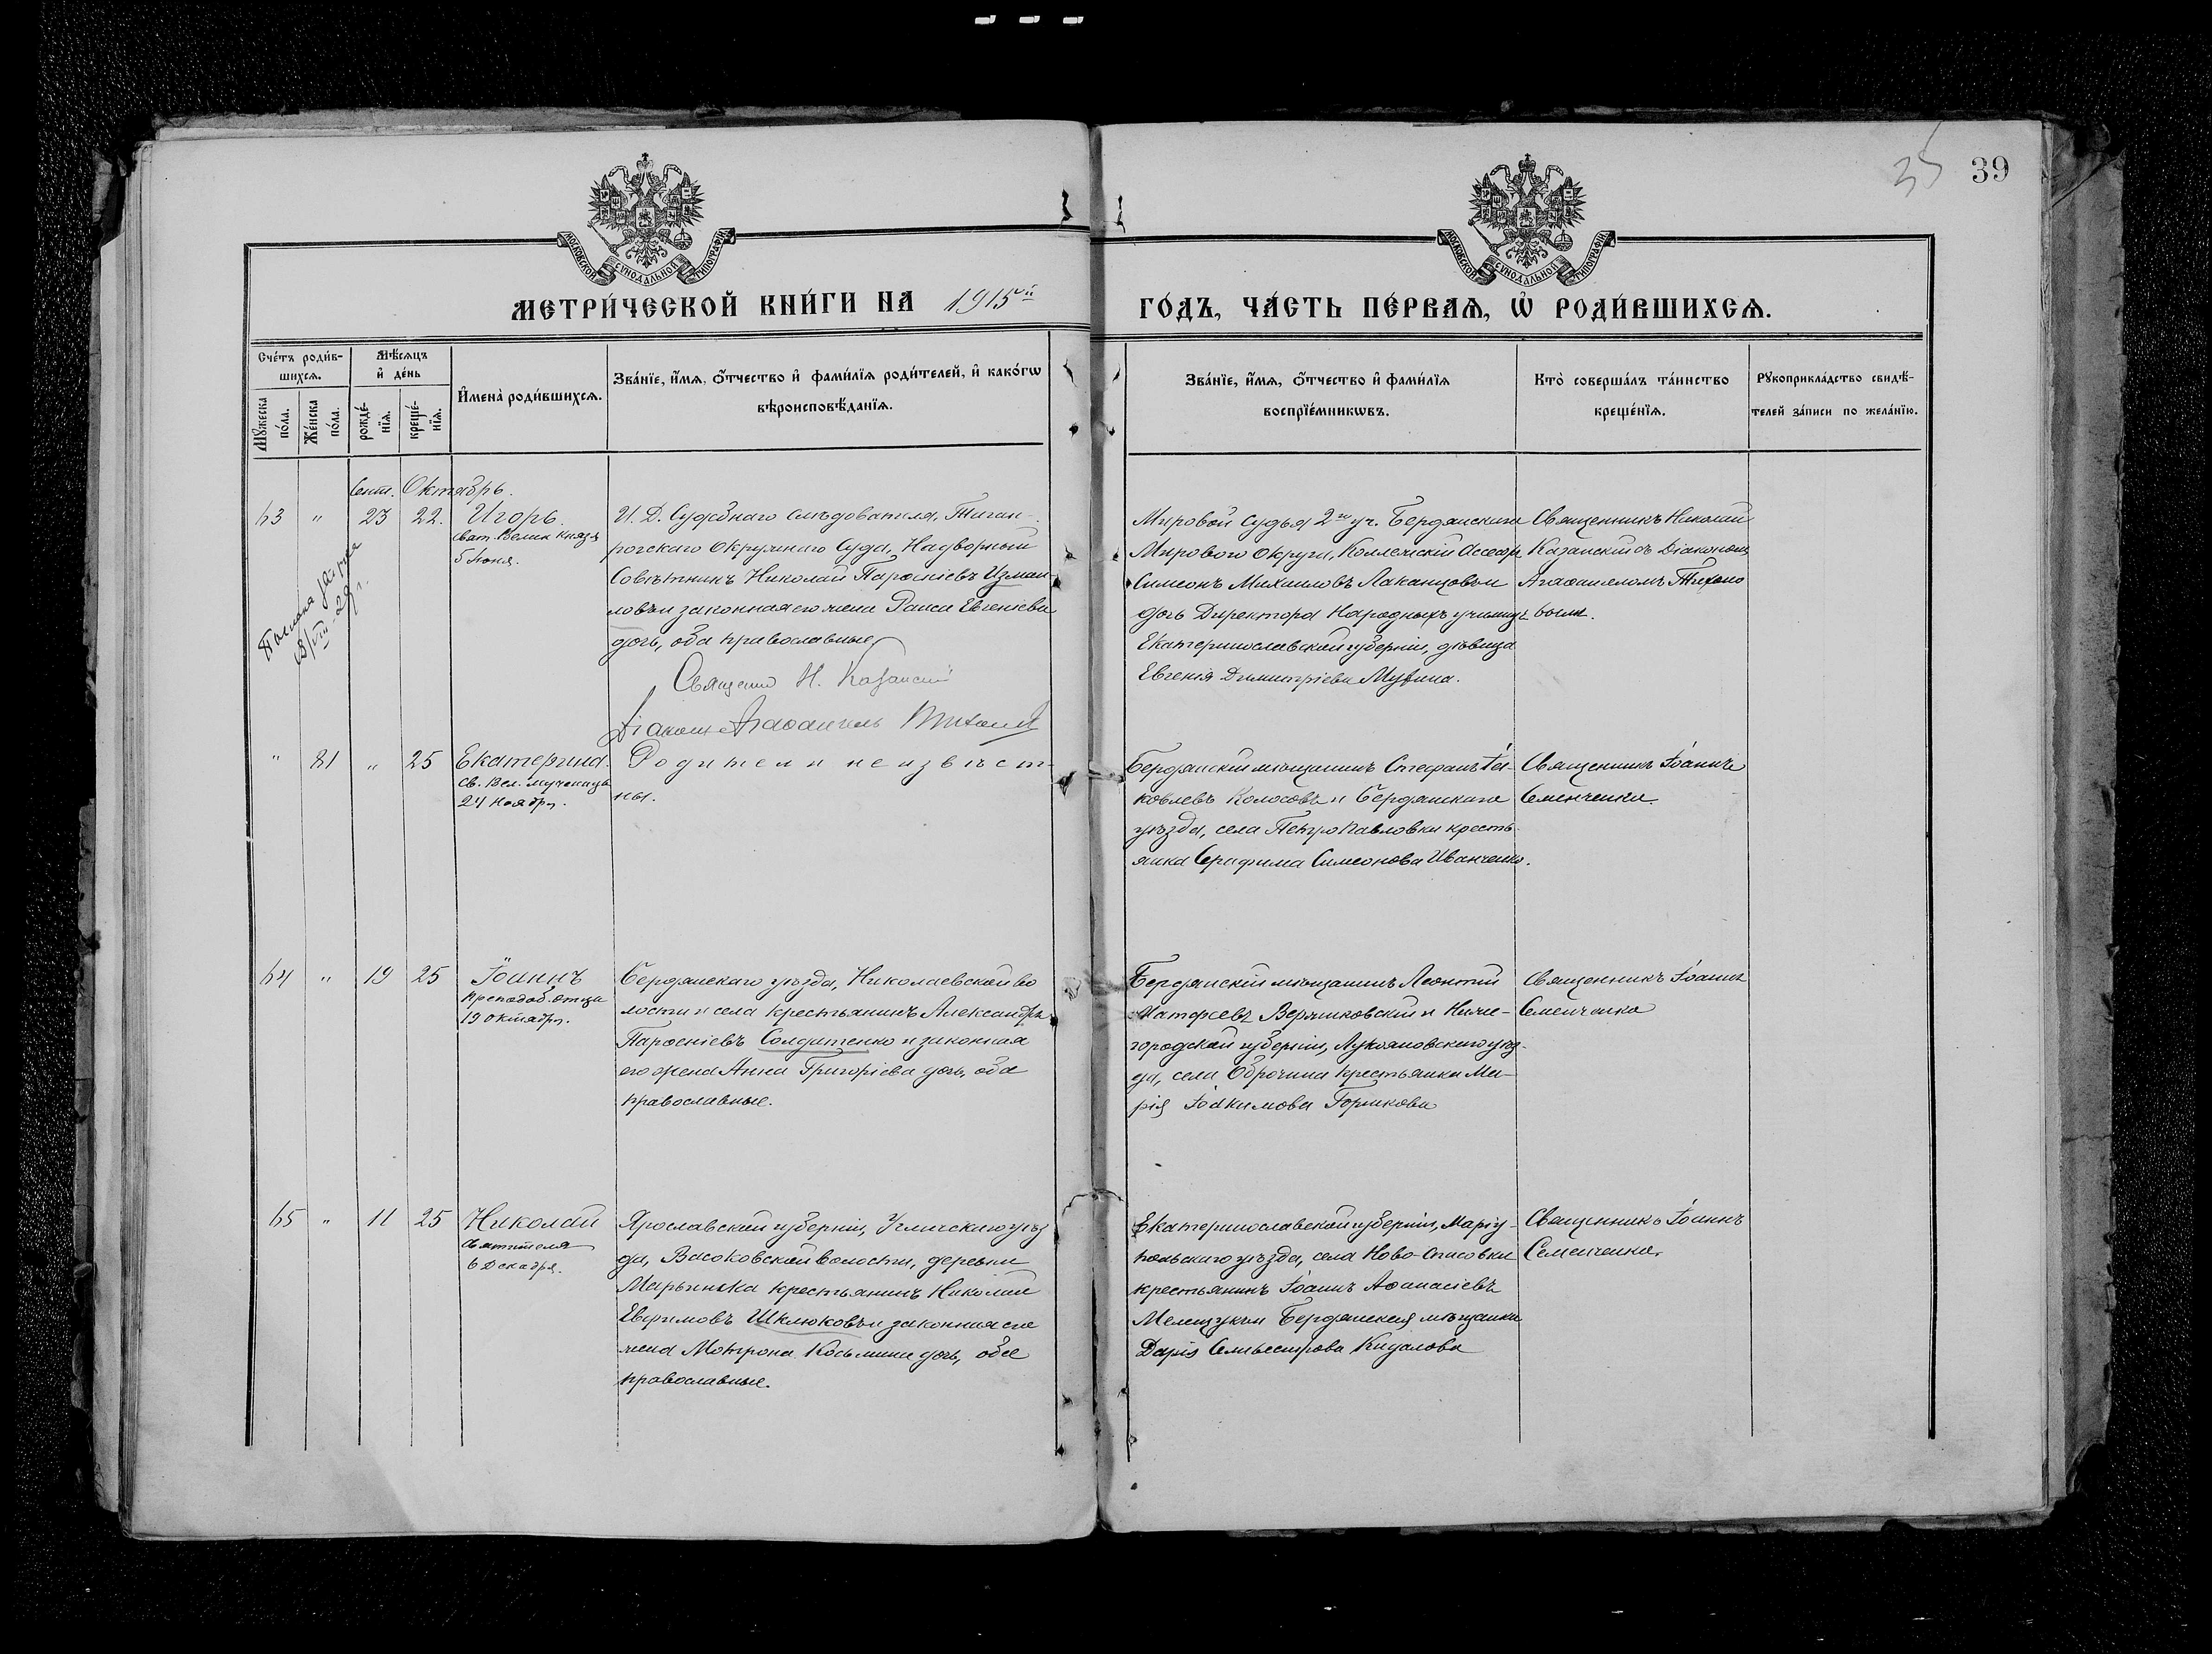 35 39
МОСКОВСКОЙ СѴНОДАЛЬНОЙ ТИПОГРАФІИ
МОСКОВСКОЙ СѴНОДАЛЬНОЙ ТИПОГРАФІИ
МЕТРИ́ЧЕСКОЙ КНИ́ГИ НА 1915й
ГО́ДЪ, ЧА́СТЬ ПЕ́РВАѦ, Ѡ҆ РОДИ́ВШИХСѦ.
Сче́тъ роди́в-
шихсѧ.
Мꙋ́жеска
по́ла.
Же́нска
по́ла.
Мѣ́сѧцъ
и҆ де́нь
рожде́-
нїѧ.
креще́-
нїѧ.
И҆мена̀ роди́вшихсѧ.
Зва́нїе, и҆́мѧ, ѻ҆́тчество и҆ фами́лїѧ роди́телей, и҆ како́гѡ
вѣроисповѣ́данїѧ.
Зва́нїе, и҆́мѧ, ѻ҆́тчество и҆ фами́лїѧ
воспрїе́мникѡвъ.
Кто̀ соверша́лъ та́инство
креще́нїѧ.
Рꙋкоприкла́дство свидѣ́-
телей за́писи по жела́нїю.
Сент. Октябрь.
63 " 23 22. Игорь.
Свят. Велик князя
5 Іюня.
И. Д. Судебнаго Слѣдователя, Таган-
рогскаго Окружнаго Суда, Надворный
Совѣтникъ Николай Парѳеніевъ Измаи-
ловъ и законная его жена Раиса Евгеніева
дочь, оба православные
Священ Н. Казанскій
Діаконъ Агаѳангелъ
Мировой Судья 2го уч. Бердянскаго
Мирового Округа, Коллежскій Ассесоръ
Симеонъ Михаиловъ Лаканцовъ и
дочь Директора Народныхъ училищъ
Екатеринославской губерніи, дѣвица
Евгенія Димитріева
Священникъ Николай
Казанскій съ Діакономъ
Агаѳангеломъ Тихоно
вымъ.
" 81 " 25 Екатерина.
Св. Вел. мученицы
24 Ноября.
Родители неизвѣст-
ны.
Бердянскій мѣщанинъ Стефанъ Іа-
ковлевъ Колосовъ и Бердянскаго
уѣзда, села Петропавловки кресть-
янка Серафима Симеонова Иванченко.
Священникъ Іоаннъ
Семенченко.
64 " 19 25 Іоаннъ
Преподоб. отца
19 Октября.
Бердянскаго уѣзда, Николаевской во
лости и села крестьянинъ Александръ
Парѳеніевъ Солдатенко и законная
его жена Анна Григоріева дочь, оба
православные.
Бердянскій мѣщанинъ Леонтій
Матѳеевъ и Ниже-
городской губерніи, Лукояновскаго уѣз-
да, села Оброчина крестьянка Ма-
рія Іоакимова Горшкова
Священникъ Іоаннъ
Семенченко
65 " 11 25 Николай
Святителя
6 Декабря.
Ярославской губерніи, Угличскаго уѣз
да, волости, деревни
Марьинска крестьянинъ Николай
Евѳимовъ Шклюковъ и законная его
жена Мотрона Косьмина дочь, оба
православные.
Екатеринославской губерніи, Маріу-
польскаго уѣзда, села Ново-Спасовки
крестьянинъ Іоаннъ Аѳанасіевъ
Мелещукъ и Бердянская мѣщанка
Дарія Сильвестрова Кидалова
Священникъ Іоаннъ
Семенченко.